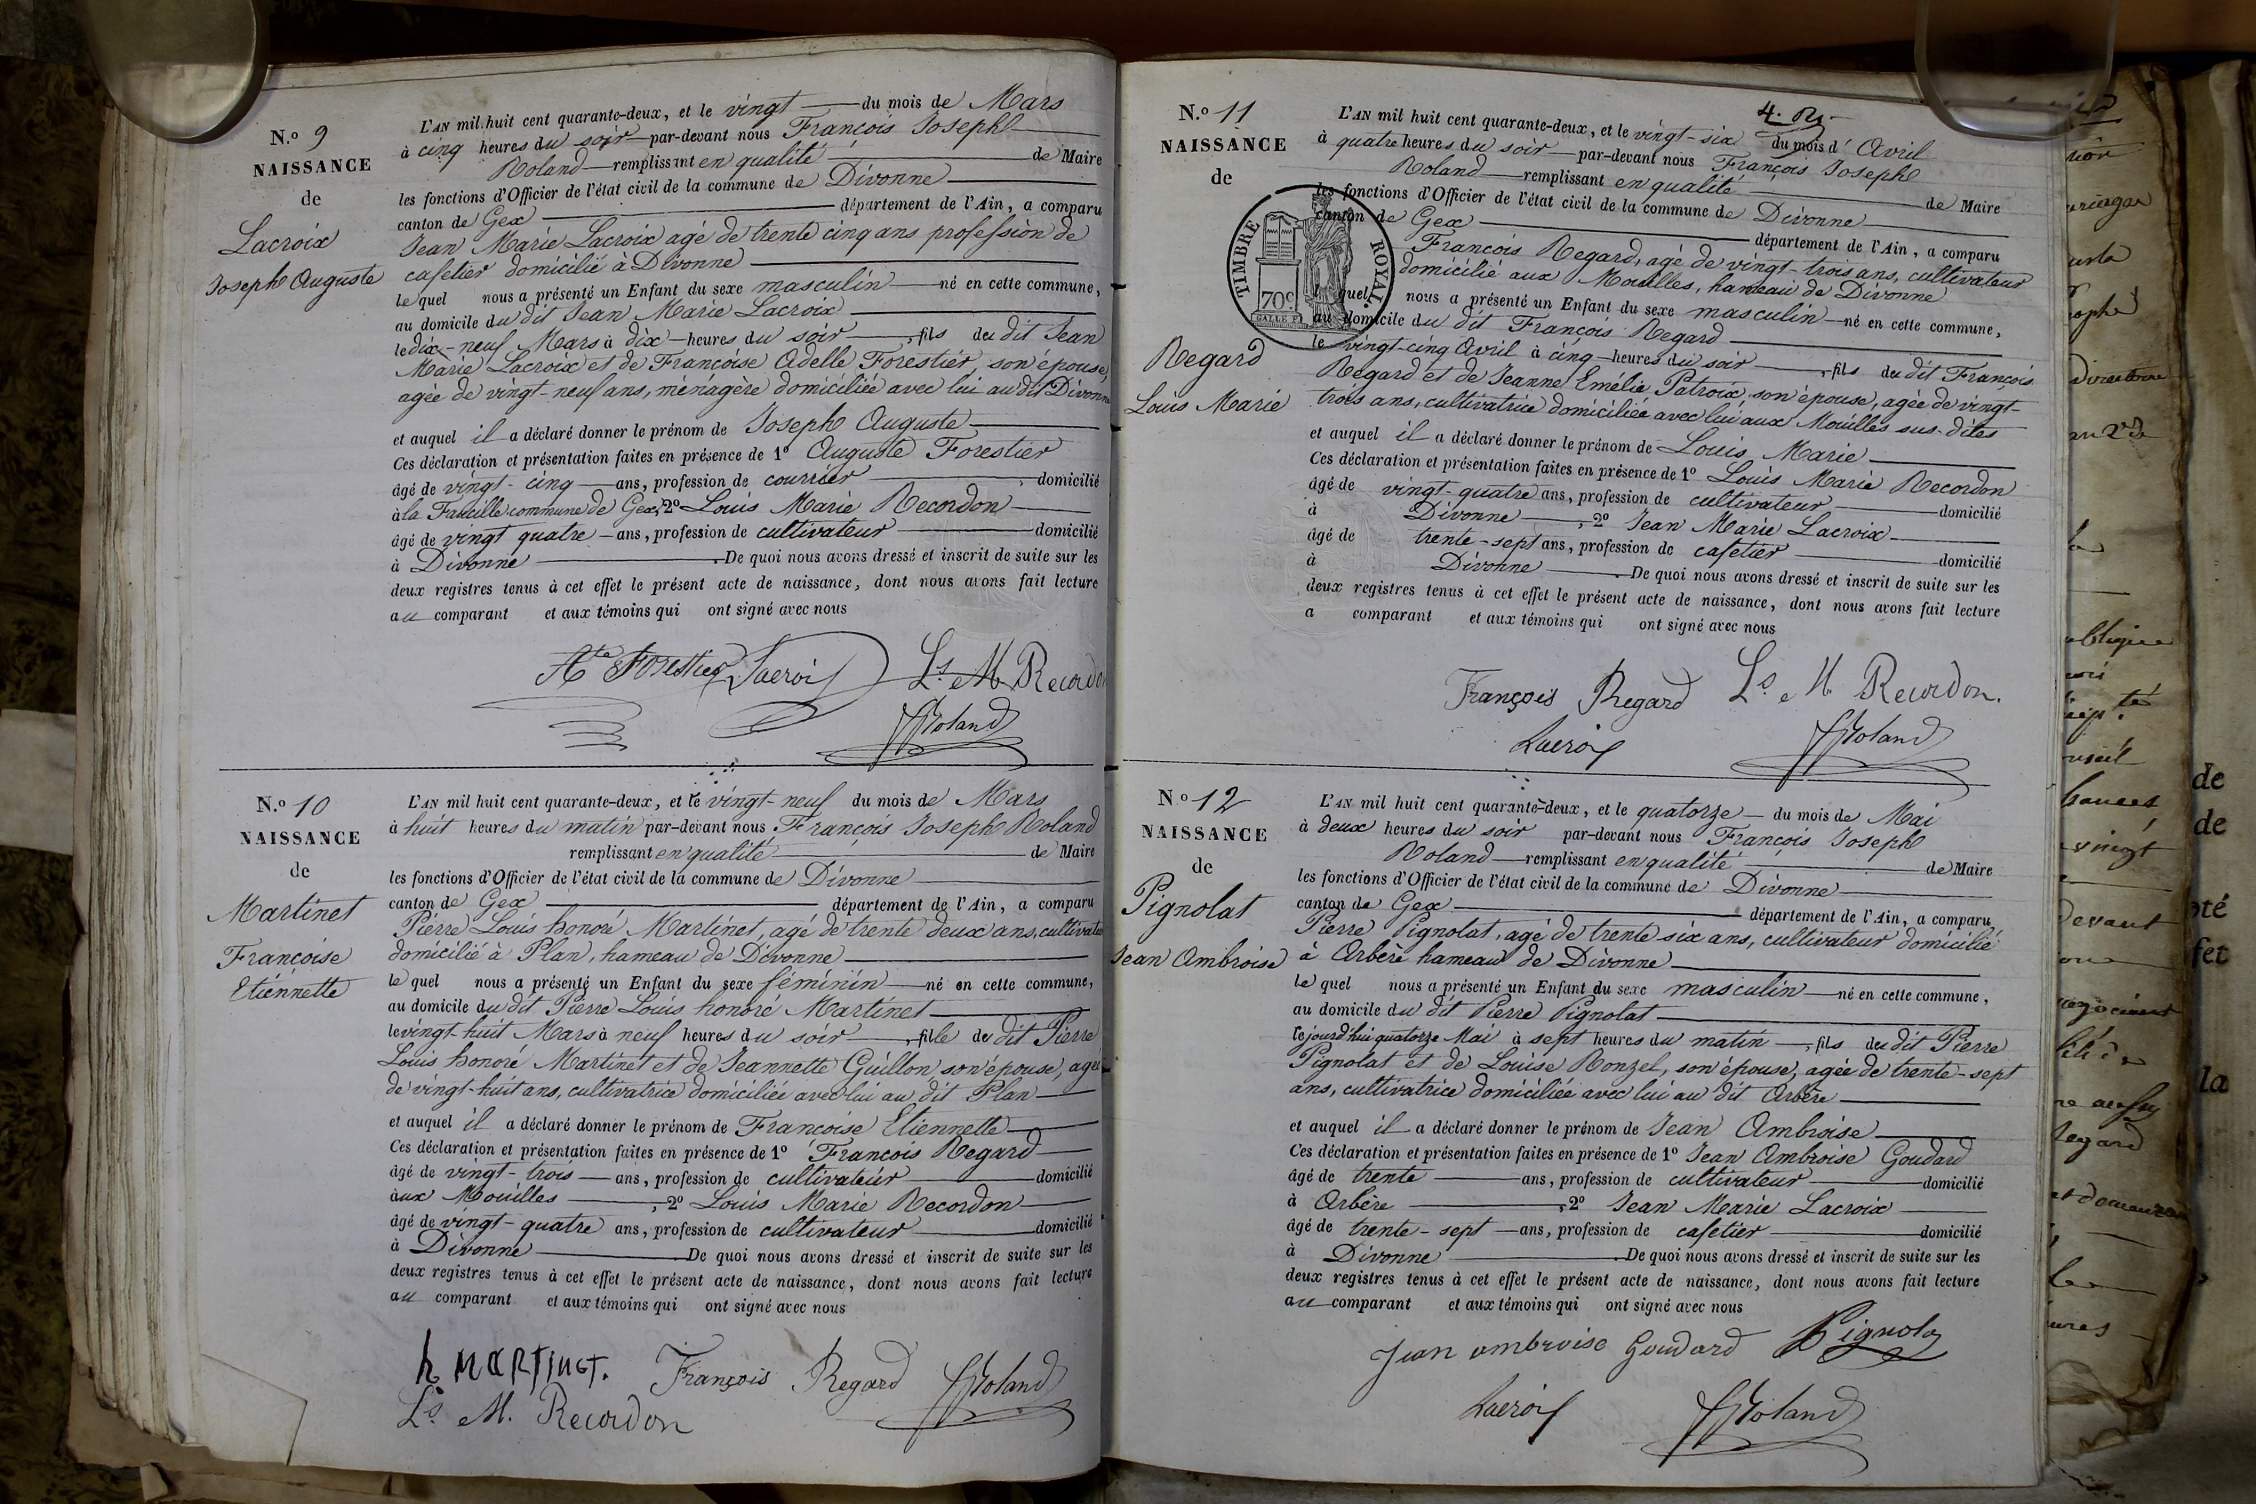 N.o 9
NAISSANCE
de
Lacroix
Joseph Auguste
L'AN mil huit cent quarante-deux, et le vingt du mois de Mars
à cinq heures du soir par-devant nous François Joseph
Roland remplissant en qualité de Maire
les fonctions d'Officier de l'état civil de la commune de Divonne
canton de Gex département de l'Ain, a comparu
Jean Marie Lacroix agé de trente cinq ans profession de
cafetier domicilié à Divonne
le quel nous a présenté un Enfant du sexe masculin né en cette commune,
au domicile du dit Jean Marie Lacroix
le dix-neuf Mars à dix heures du soir, fils du dit Jean
Marie Lacroix et de Françoise Adelle Forestier, son épouse,
agée de vingt-neuf ans, ménagère domiciliée avec lui au dit Divonne
et auquel il a déclaré donner le prénom de Joseph Auguste
Ces déclaration et présentation faites en présence de 1o Auguste Forestier
âgé de vingt-cinq ans, profession de courrier, domicilié
à la Faucille commune de Gex, 2o Louis Marie Recordon
âgé de vingt quatre ans, profession de cultivateur domicilié
à Divonne. De quoi nous avons dressé et inscrit de suite sur les
deux registres tenus à cet effet le présent acte de naissance, dont nous avons fait lecture
au comparant et aux témoins qui ont signé avec nous
Ate Forestier Lacroix Ls M Recordon
FJRoland
N.o 10
NAISSANCE
de
Martinet
Françoise
Etiennette
L'AN mil huit cent quarante-deux, et le vingt-neuf du mois de Mars
à huit heures du matin par-devant nous François Joseph Roland
remplissant en qualité de Maire
les fonctions d'Officier de l'état civil de la commune de Divonne
canton de Gex département de l'Ain, a comparu
Pierre Louis honoré Martinet, agé de trente deux ans, cultivateur
domicilié à Plan, hameau de Divonne
le quel nous a présenté un Enfant du sexe féminin né en cette commune,
au domicile du dit Pierre Louis honoré Martinet
le vingt-huit Mars à neuf heures du soir, fille du dit Pierre
Louis honoré Martinet et de Jeannette Guillon, son épouse, agée
de vingt-huit ans, cultivatrice domiciliée avec lui au dit Plan
et auquel il a déclaré donner le prénom de Françoise Etiennette
Ces déclaration et présentation faites en présence de 1o François Regard
âgé de vingt-trois ans, profession de cultivateur domicilié
aux Mouilles, 2o Louis Marie Recordon
âgé de vingt-quatre ans, profession de cultivateur domicilié
à Divonne De quoi nous avons dressé et inscrit de suite sur les
deux registres tenus à cet effet le présent acte de naissance, dont nous avons fait lecture
au comparant et aux témoins qui ont signé avec nous
h MARTINET. François Regard FJRoland
Ls M. Recordon
4.
N.o 11
NAISSANCE
de
TIMBRE ROYAL
70c
Regard
Louis Marie
L'AN mil huit cent quarante-deux, et le vingt-six du mois d'Avril
à quatre heures du soir par-devant nous François Joseph
Roland remplissant en qualité de Maire
les fonctions d'Officier de l'état civil de la commune de Divonne
canton de Gex département de l'Ain, a comparu
François Regard, agé de vingt-trois ans, cultivateur
domicilié aux Mouilles, hameau de Divonne
le quel nous a présenté un Enfant du sexe masculin né en cette commune,
au domicile du dit François Regard
le vingt-cinq Avril à cinq heures du soir, fils du dit François
Regard et de Jeanne Emélie Patroix, son épouse, agée de vingt-
trois ans, cultivatrice domiciliée avec lui aux Mouilles sus-dites
et auquel il a déclaré donner le prénom de Louis Marie
Ces déclaration et présentation faites en présence de 1o Louis Marie Recordon
âgé de vingt-quatre ans, profession de cultivateur domicilié
à Divonne, 2o Jean Marie Lacroix
âgé de trente-sept ans, profession de cafetier domicilié
à Divonne. De quoi nous avons dressé et inscrit de suite sur les
deux registres tenus à cet effet le présent acte de naissance, dont nous avons fait lecture
a comparant et aux témoins qui ont signé avec nous
François Regard Ls M. Recordon.
Lacroix FJRoland
N.o 12
NAISSANCE
de
Pignolat
Jean Ambroise
L'AN mil huit cent quarante-deux, et le quatorze du mois de Mai
à deux heures du soir par-devant nous François Joseph
Roland remplissant en qualité de Maire
les fonctions d'Officier de l'état civil de la commune de Divonne
canton de Gex département de l'Ain, a comparu
Pierre Pignolat, agé de trente six ans, cultivateur domicilié
à Arbère hameau de Divonne
le quel nous a présenté un Enfant du sexe masculin né en cette commune,
au domicile du dit Pierre Pignolat
le jourd'hui quatorze Mai à sept heures du matin, fils du dit Pierre
Pignolat et de Louise Ronzel, son épouse, agée de trente-sept
ans, cultivatrice domiciliée avec lui au dit Arbère
et auquel il a déclaré donner le prénom de Jean Ambroise
Ces déclaration et présentation faites en présence de 1o Jean Ambroise Goudard
âgé de trente ans, profession de cultivateur domicilié
à Arbère, 2o Jean Marie Lacroix
âgé de trente-sept ans, profession de cafetier domicilié
à Divonne. De quoi nous avons dressé et inscrit de suite sur les
deux registres tenus à cet effet le présent acte de naissance, dont nous avons fait lecture
au comparant et aux témoins qui ont signé avec nous
Jean ambroise Goudard Pignola
Lacroix FJRoland